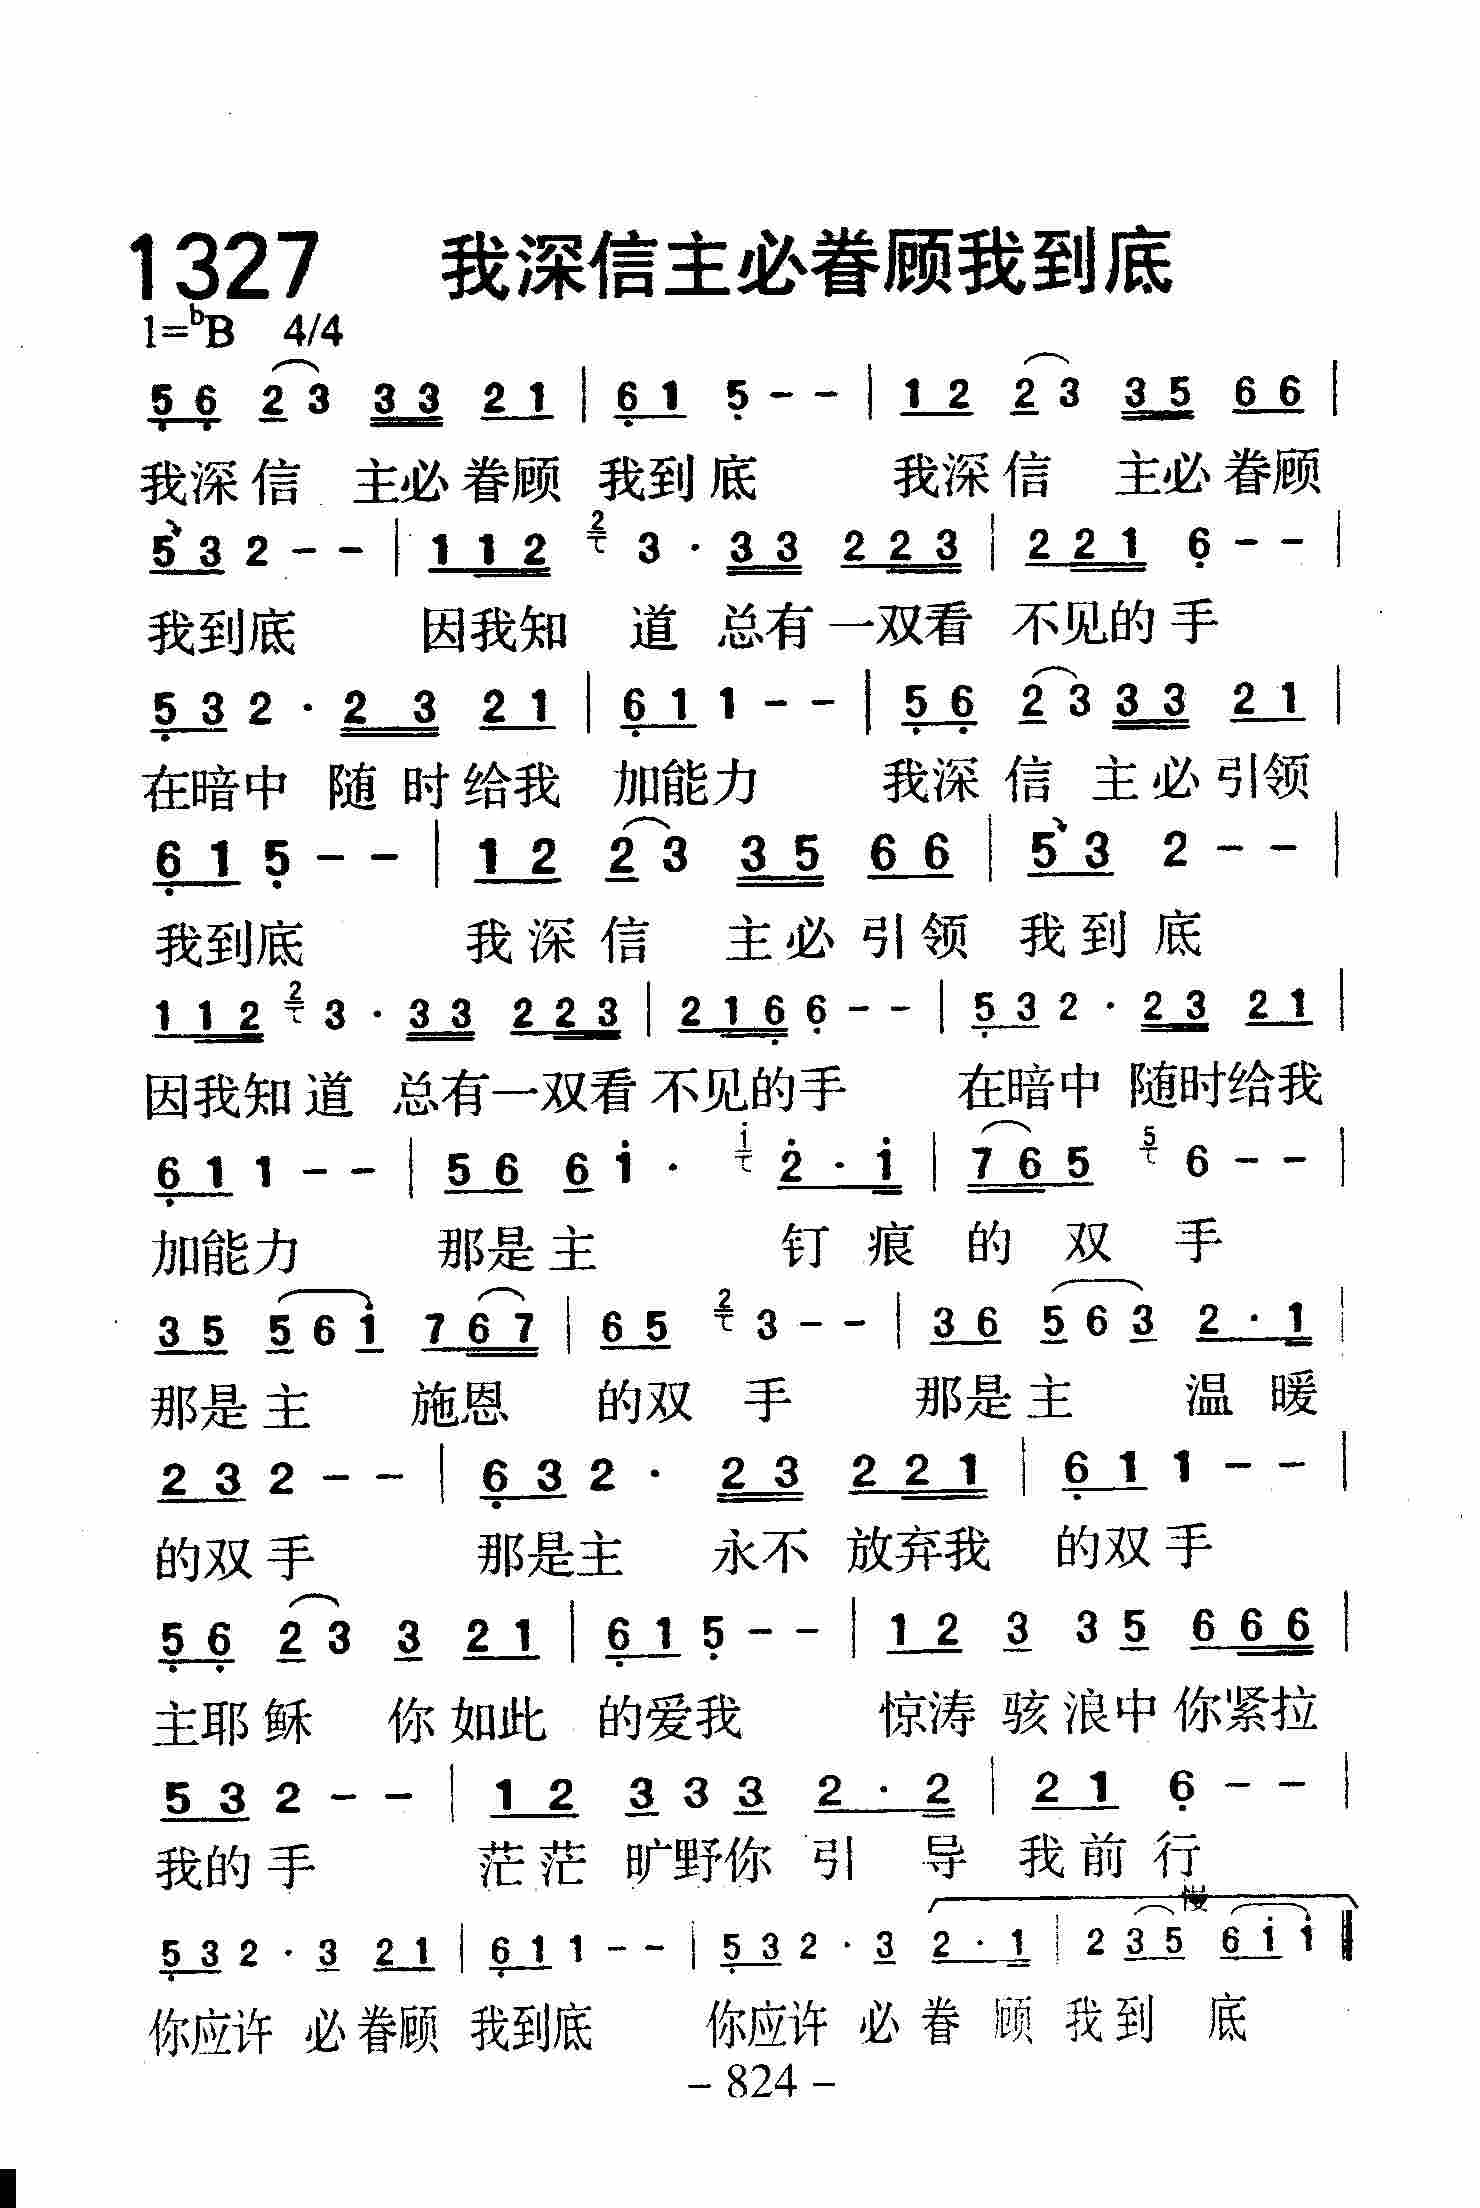 1327 我深信主必眷顾我到底
1=ᵇB 4/4
5 6 2 3 3 3 2 1 | 6 1 5 - - | 1 2 2 3 3 5 6 6 |
我深信 主必眷顾 我到底 我深信 主必眷顾
5 3 2 - - | 1 1 2 2 3 · 3 3 2 2 3 | 2 2 1 6 - - |
我到底 因我知 道 总有一双看 不见的手
5 3 2 · 2 3 2 1 | 6 1 1 - - | 5 6 2 3 3 3 2 1 |
在暗中 随时给我 加能力 我深信 主必引领
6 1 5 - - | 1 2 2 3 3 5 6 6 | 5 3 2 - - |
我到底 我深信 主必引领 我到底
1 1 2 2 3 · 3 3 2 2 3 | 2 1 6 6 - - | 5 3 2 · 2 3 2 1 |
因我知道 总有一双看不见的手 在暗中 随时给我
6 1 1 - - | 5 6 6 1 · 1 2 · 1 | 7 6 5 5 6 - - |
加能力 那是主 钉痕 的双手
3 5 5 6 1 7 6 7 | 6 5 2 3 - - | 3 6 5 6 3 2 · 1 |
那是主 施恩 的双手 那是主 温暖
2 3 2 - - | 6 3 2 · 2 3 2 2 1 | 6 1 1 - - |
的双手 那是主 永不 放弃我 的双手
5 6 2 3 3 2 1 | 6 1 5 - - | 1 2 3 3 5 6 6 6 |
主耶稣 你如此 的爱我 惊涛骇浪中你紧拉
5 3 2 - - | 1 2 3 3 3 2 · 2 | 2 1 6 - - |
我的手 茫茫 旷野你 引导 我前行
慢
5 3 2 · 3 2 1 | 6 1 1 - - | 5 3 2 · 3 2 · 1 | 2 3 5 6 1 1 ‖
你应许 必眷顾 我到底 你应许 必眷顾 我到 底
- 824 -